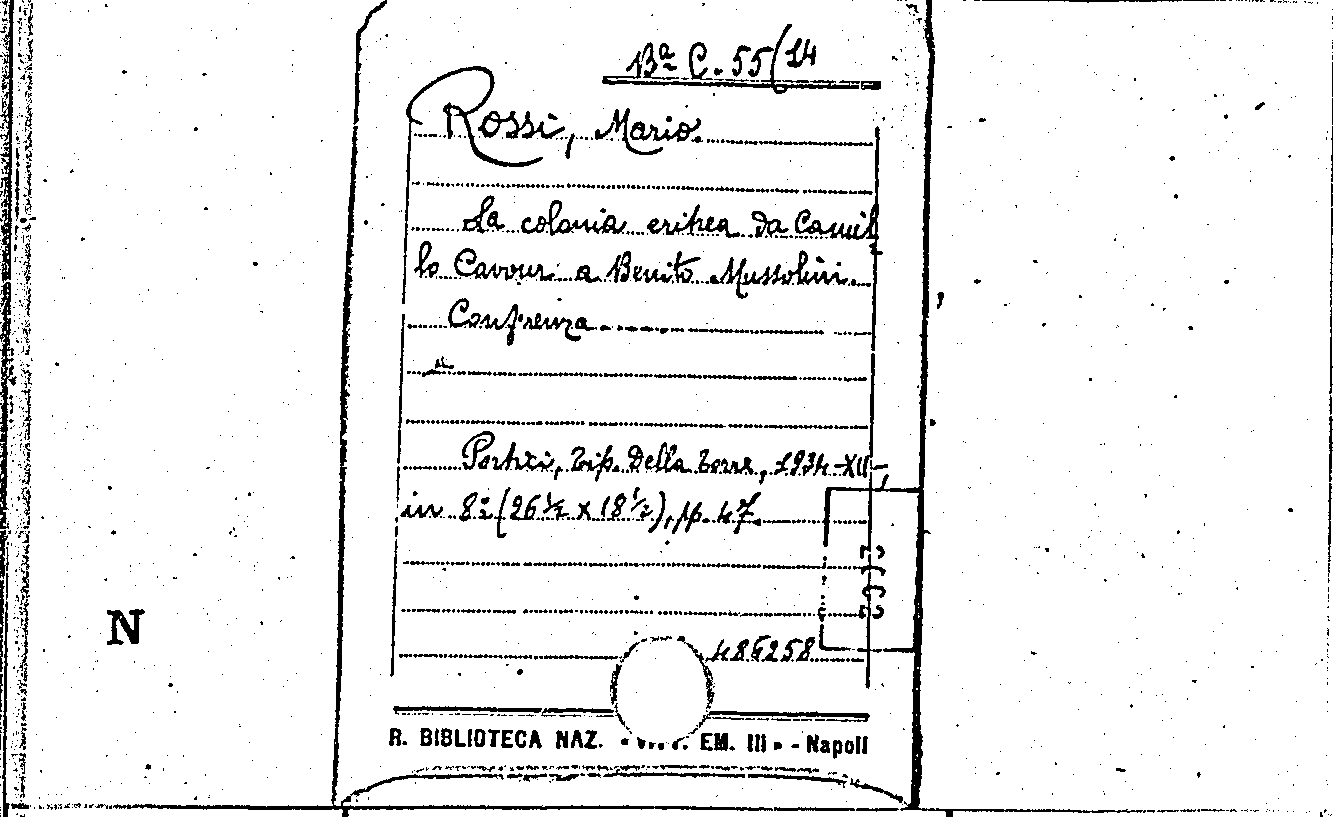 Bª C. 55(14
Rossi, Mario.
La colonia eritrea da Camil
lo Cavour a Benito Mussolini.
Confrenza
Portici, Tip. Della Torre, 1934-XII,
in 8º (26 ½ x 18 ½), pp. 47.
N
486258
R. BIBLIOTECA NAZ. EM. III» - Napoli